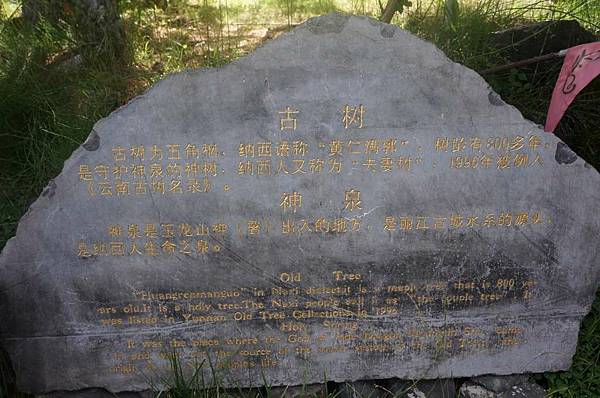 古 树
古树为五角枫，纳西语称“黄仁满郭”，树龄有800多年，
是守护神泉的神树，纳西人又称为“夫妻树”，1996年被列入
《云南古树名录》。
神 泉
神泉是玉龙山神（署）出入的地方，是丽江古城水系的源头，
是纳西人生命之泉。
Old Tree
"Huangrenmanguo" in Naxi dialect.it is a maple tree that is 800 ye-
ars old.It is a holy tree.The Naxi people call it as "the couple tree". It
was listed in Yunnan Old Tree Collections in 1996.
Holy Spring
It was the place where the God of Jade Dragon Mountain
and the source of the
origin life